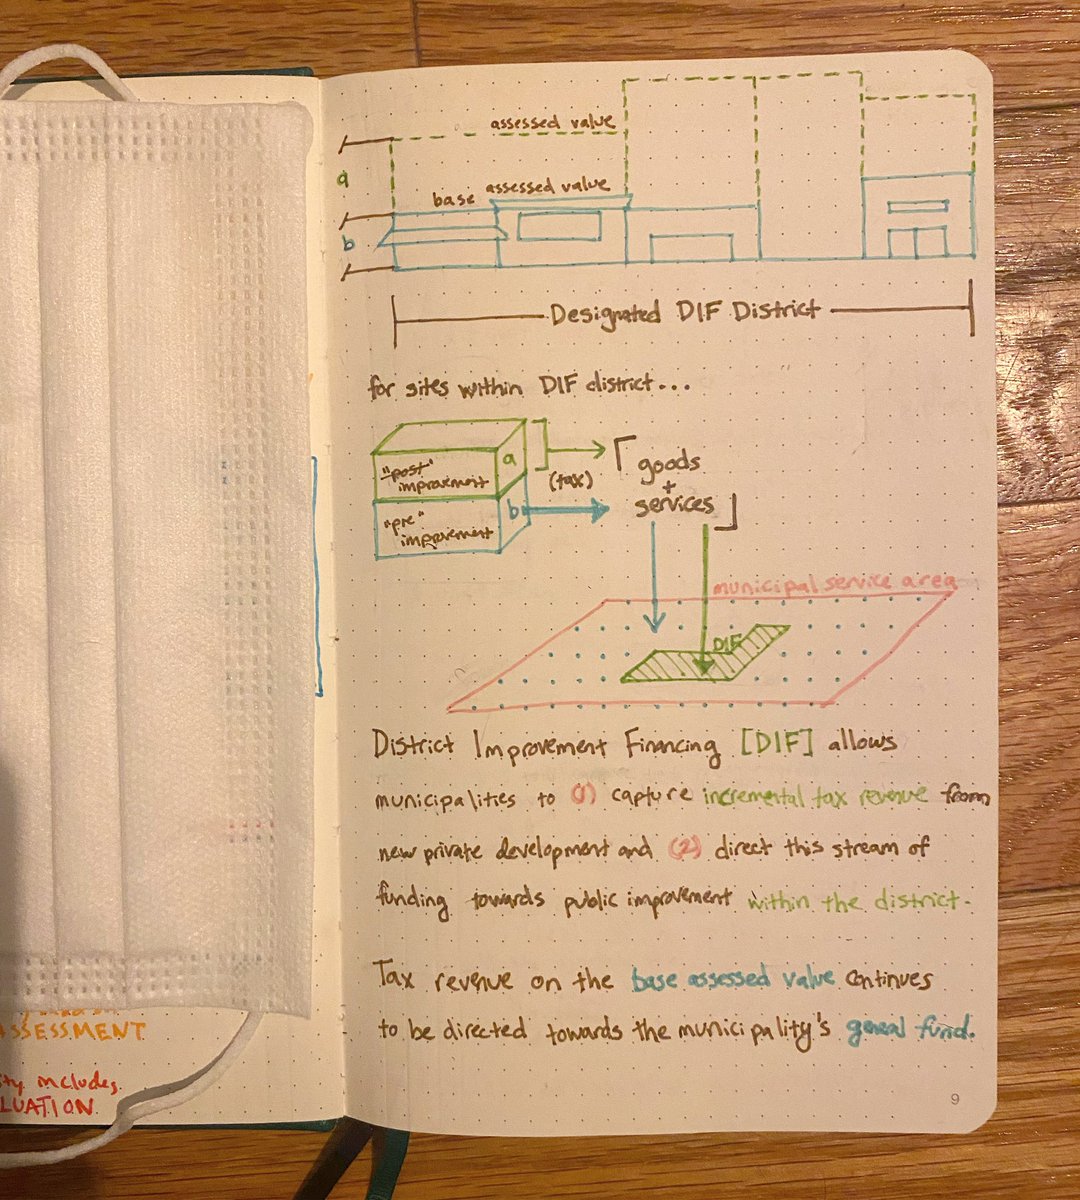 assessed value
a
base assessed value
b
Designated DIF District
for sites within DIF district...
"post" improvement
a
(tax)
goods
+
services
"pre" improvement
b
municipal service area
DIF
District Improvement Financing [DIF] allows
municipalities to (1) capture incremental tax revenue from
new private development and (2) direct this stream of
funding towards public improvement within the district.
Tax revenue on the base assessed value continues
to be directed towards the municipality's general fund.
9
SSESSMENT
includes
LUATION